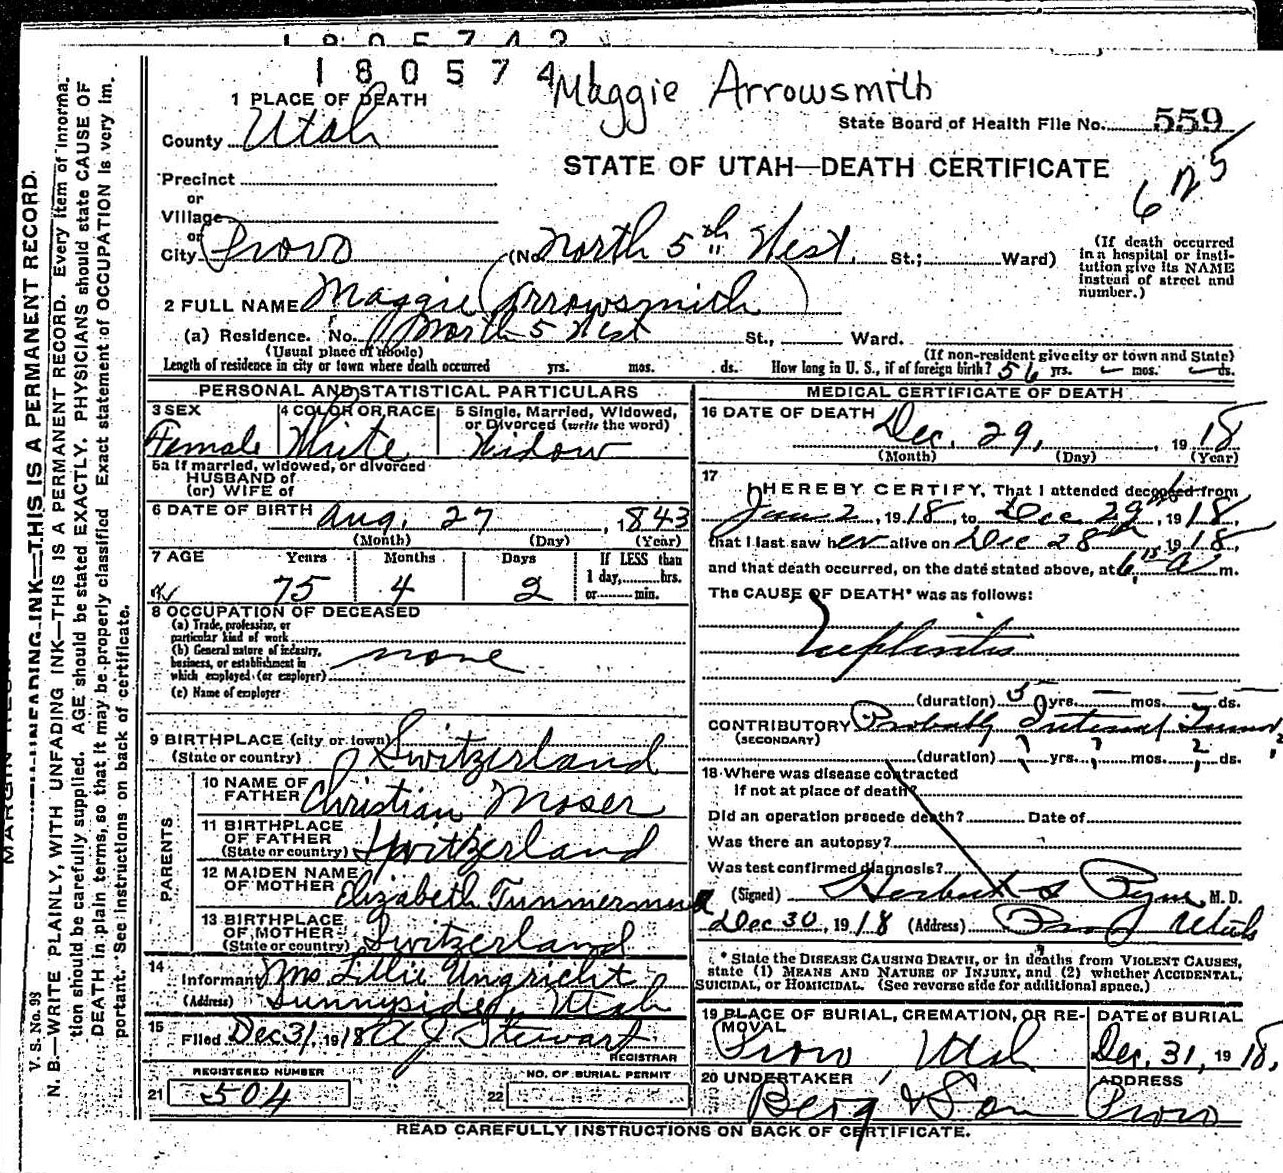 1805742
180574
Maggie Arrowsmith
1 PLACE OF DEATH
County Utah
State Board of Health File No. 559
STATE OF UTAH—DEATH CERTIFICATE
Precinct
or
Village
or
City Provo (No North 5th West. St.; Ward)
(If death occurred in a hospital or insti-
tution give its NAME
instead of street and
number.)
2 FULL NAME Maggie (Arrowsmith)
(a) Residence. No. North 5 West St., Ward.
(Usual place of abode) (If non-resident give city or town and State)
Length of residence in city or town where death occurred yrs. mos. ds. How long in U. S., if of foreign birth? 56 yrs. mos. ds.
PERSONAL AND STATISTICAL PARTICULARS
3 SEX
Female
4 COLOR OR RACE
White
5 Single, Married, Widowed,
or Divorced (write the word)
Widow
5a If married, widowed, or divorced
HUSBAND of
(or) WIFE of
6 DATE OF BIRTH Aug. 27, 1843
(Month) (Day) (Year)
7 AGE Years Months Days If LESS than
1 day, hrs.
or min.
75 4 2
8 OCCUPATION OF DECEASED
(a) Trade, profession, or
particular kind of work
(b) General nature of industry,
business, or establishment in
which employed (or employer) none
(c) Name of employer
9 BIRTHPLACE (city or town)
(State or country) Switzerland
PARENTS
10 NAME OF
FATHER Christian Moser
11 BIRTHPLACE
OF FATHER
(State or country) Switzerland
12 MAIDEN NAME
OF MOTHER Elizabeth
13 BIRTHPLACE
OF MOTHER
(State or country) Switzerland
14 Informant Mrs Lillie Ungricht
(Address) Sunnyside, Utah
15 Filed Dec 31, 1918 A J Stewart
REGISTRAR
REGISTERED NUMBER
21 504
NO. OF BURIAL PERMIT
22
MEDICAL CERTIFICATE OF DEATH
16 DATE OF DEATH Dec. 29, 1918
(Month) (Day) (Year)
17
I HEREBY CERTIFY, That I attended deceased from
Jan 2, 1918, to Dec 29th, 1918,
that I last saw her alive on Dec 28th, 1918,
and that death occurred, on the date stated above, at 6 15 A m.
The CAUSE OF DEATH* was as follows:
Nephritis
(duration) 5 yrs. mos. ds.
CONTRIBUTORY Probably Internal
(SECONDARY)
(duration) ? yrs. ? mos. ? ds.
18 Where was disease contracted
if not at place of death?
Did an operation precede death? Date of
Was there an autopsy?
Was test confirmed diagnosis?
(Signed) Herbert S Pyne M. D.
Dec 30, 1918 (Address) Provo Utah
* State the DISEASE CAUSING DEATH, or in deaths from VIOLENT CAUSES,
state (1) MEANS AND NATURE OF INJURY, and (2) whether ACCIDENTAL,
SUICIDAL, or HOMICIDAL. (See reverse side for additional space.)
19 PLACE OF BURIAL, CREMATION, OR RE-
MOVAL
Provo, Utah
DATE of BURIAL
Dec, 31, 1918,
20 UNDERTAKER
Berg & Son
ADDRESS
Provo
READ CAREFULLY INSTRUCTIONS ON BACK OF CERTIFICATE.
V. S. No. 93
N. B.—WRITE PLAINLY, WITH UNFADING INK—THIS IS A PERMANENT RECORD. Every item of informa-
tion should be carefully supplied. AGE should be stated EXACTLY. PHYSICIANS should state CAUSE OF
DEATH in plain terms, so that it may be properly classified. Exact statement of OCCUPATION is very im-
portant. See instructions on back of certificate.
UNFADING INK—THIS IS A PERMANENT RECORD.